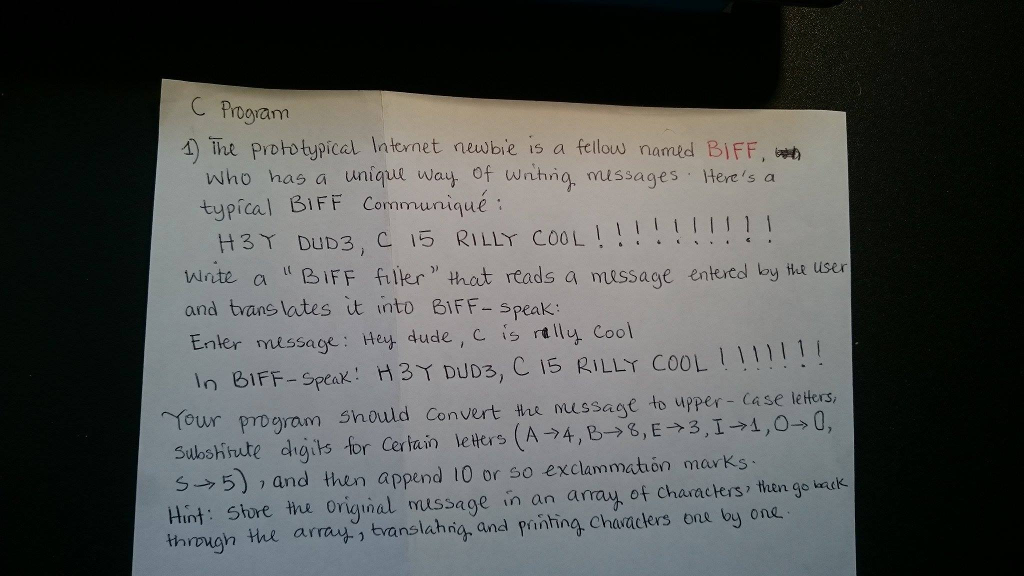 C Program
1) The prototypical Internet newbie is a fellow named BIFF,
who has a unique way of writing messages. Here's a
typical BIFF Communiqué:
H3Y DUD3, C 15 RILLY COOL!!!!!!!!!!
Write a "BIFF filter" that reads a message entered by the user
and translates it into BIFF-speak:
Enter message: Hey dude, C is rilly Cool
In BIFF-Speak: H3Y DUD3, C 15 RILLY COOL!!!!!!
Your program should convert the message to upper-case letters,
substitute digits for certain letters (A→4, B→8, E→3, I→1, O→0,
S→5), and then append 10 or so exclammation marks.
Hint: Store the original message in an array of characters, then go back
through the array, translating and printing characters one by one.